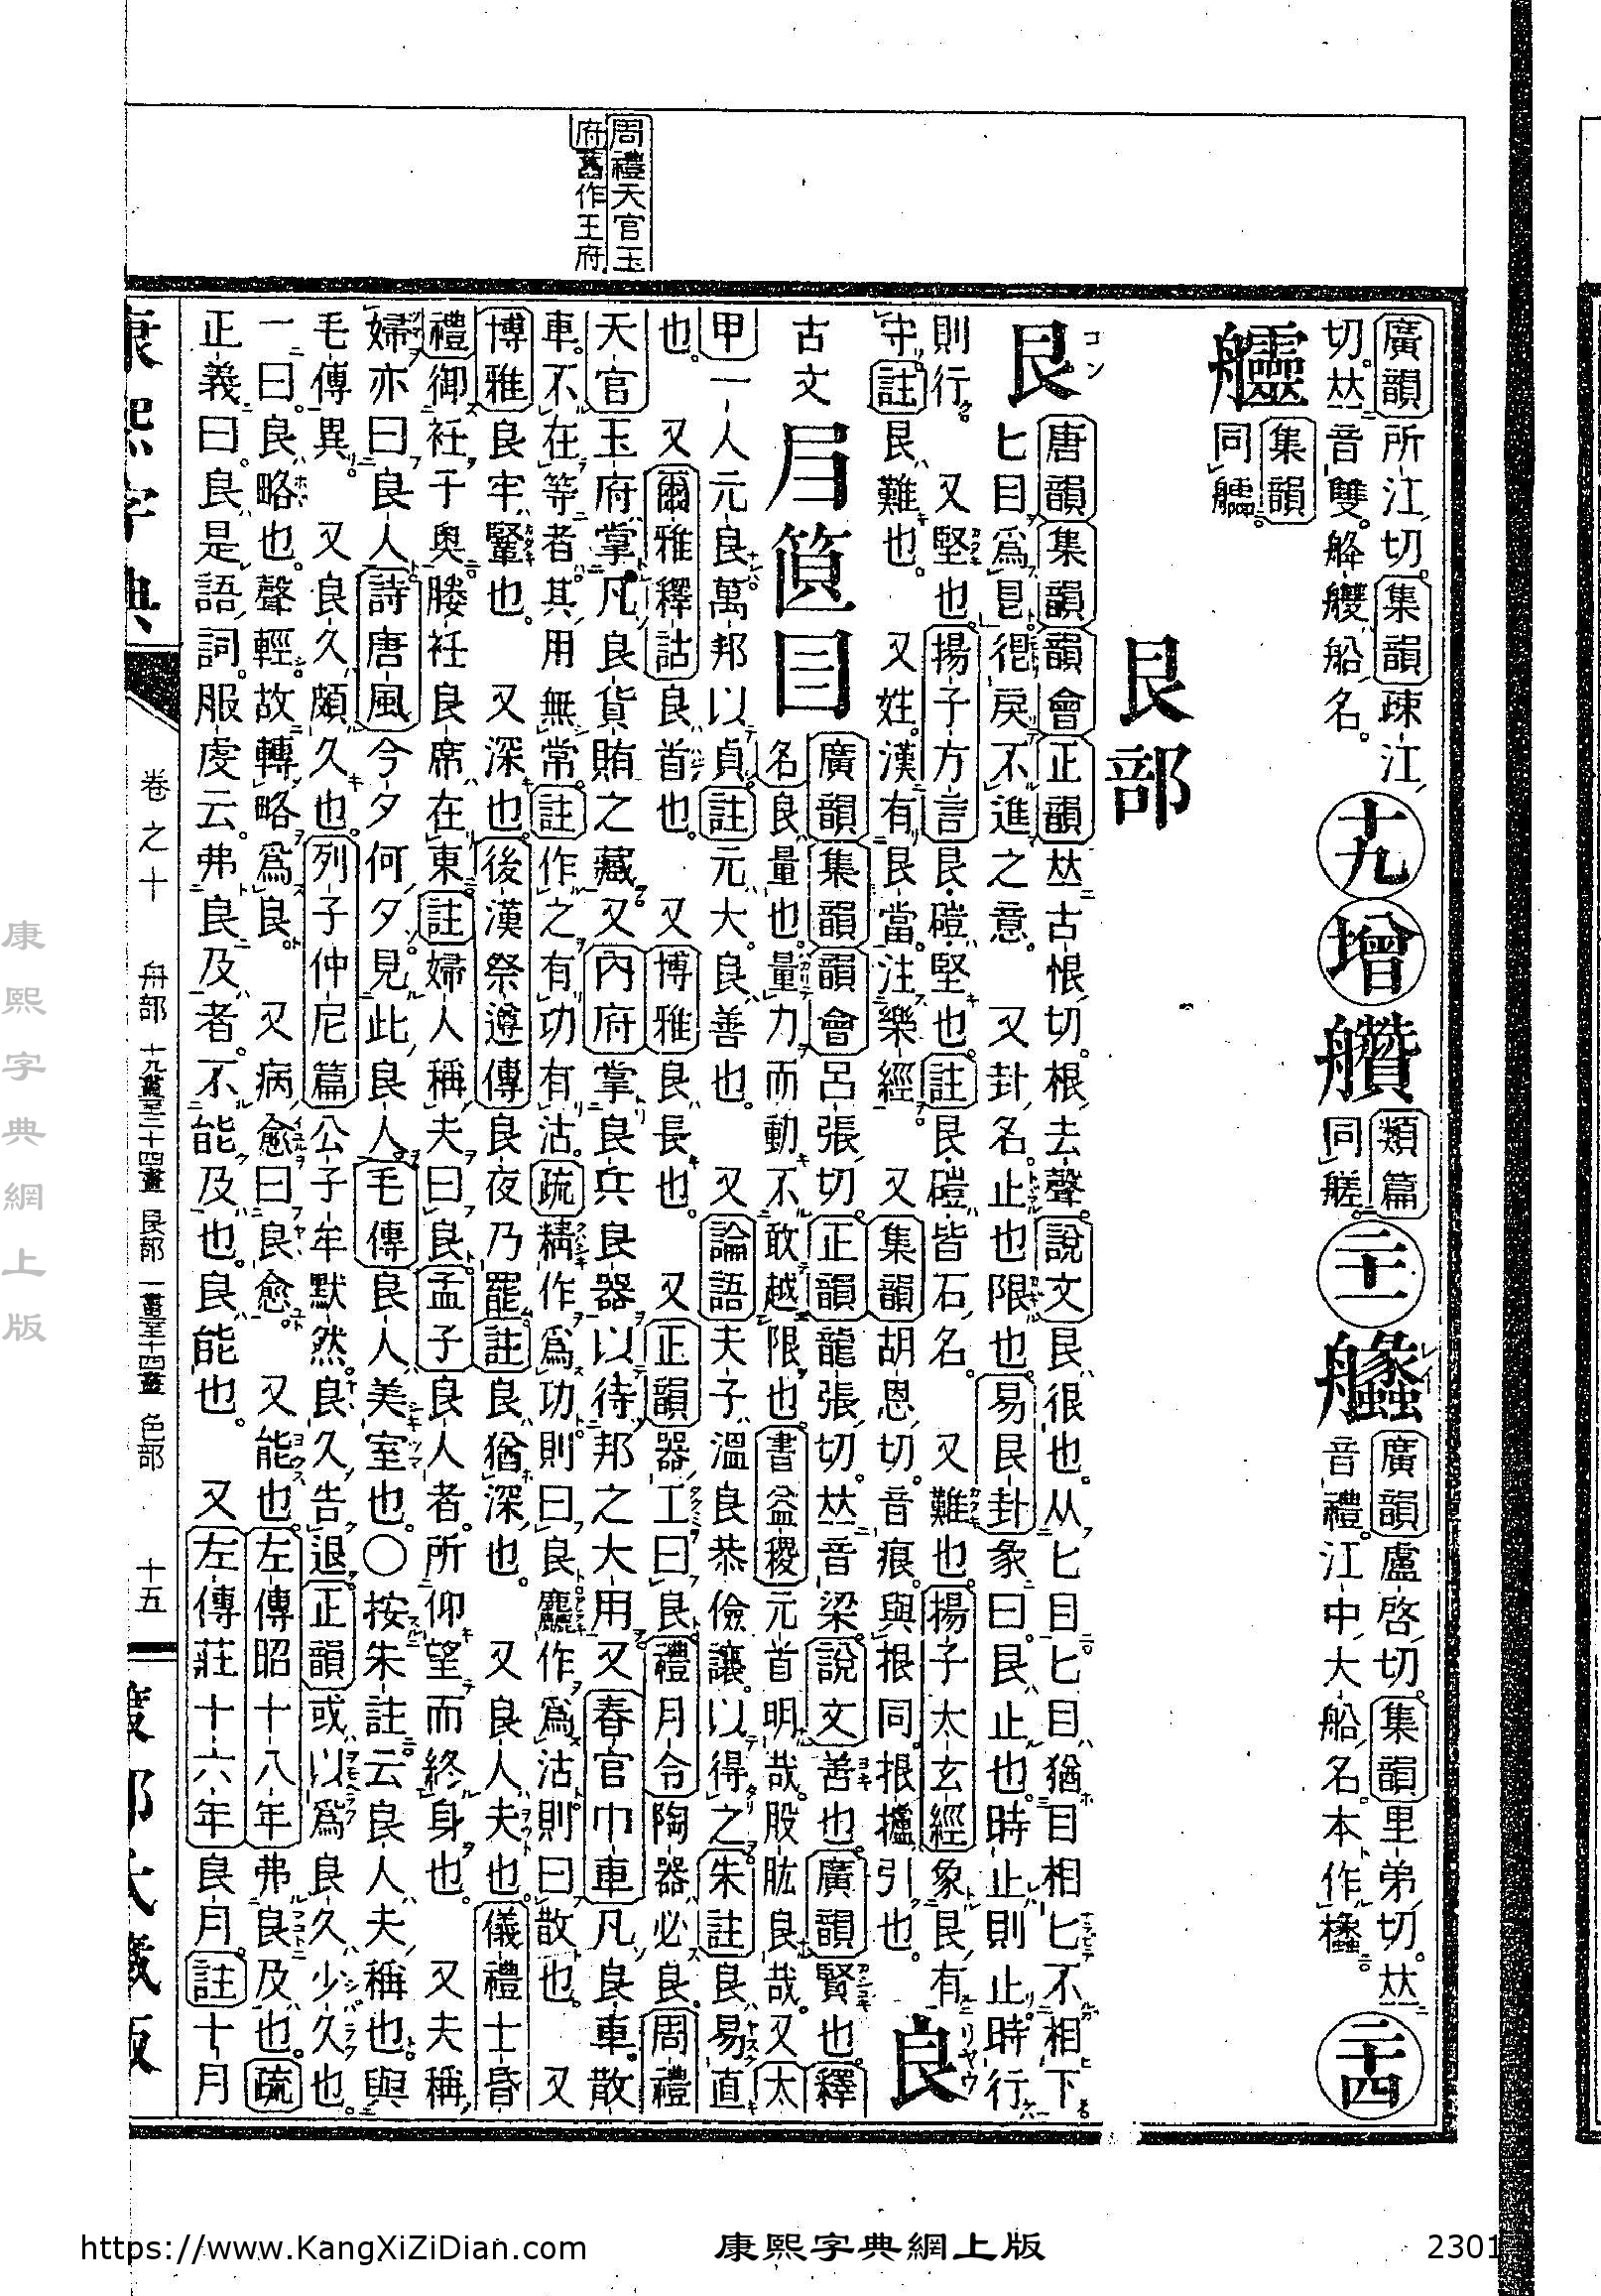 周禮天官玉
府舊作王府
廣韻所江切集韻疎江
切𠀤音雙舽艭船名
十九
增
類篇
同艖
二十一
廣韻盧啓切集韻里弟切𠀤
音禮江中大船名本作欚
二十四
集韻
同
艮部
艮
唐韻集韻韻會正韻𠀤古恨切根去聲說文艮很也从匕目匕目猶目相匕不相下
匕目爲皀很戾不進之意 又卦名止也限也易艮卦彖曰艮止也時止則止時行
則行 又堅也揚子方言艮磑堅也註艮磑皆石名 又難也揚子太玄經象艮有
守註艮難也 又姓漢有艮當注樂經 又集韻胡恩切音痕與拫同拫攎引也
良
古文
廣韻集韻韻會呂張切正韻龍張切𠀤音梁說文善也廣韻賢也釋
名良量也量力而動不敢越限也書益稷元首明哉股肱良哉又太
甲一人元良萬邦以貞註元大良善也 又論語夫子溫良恭儉讓以得之朱註良易直
也 又爾雅釋詁良首也 又博雅良長也 又正韻器工曰良禮月令陶器必良周禮
天官玉府掌凡良貨賄之藏又內府掌良兵良器以待邦之大用又春官巾車凡良車散
車不在等者其用無常註作之有功有沽疏精作爲功則曰良麤作爲沽則曰散也 又
博雅良牢堅也 又深也後漢祭遵傳良夜乃罷註良猶深也 又良人夫也儀禮士昏
禮御衽于奥媵衽良席在東註婦人稱夫曰良孟子良人者所仰望而終身也 又夫稱
婦亦曰良人詩唐風今夕何夕見此良人毛傳良人美室也○按朱註云良人夫稱也與
毛傳異 又良久頗久也列子仲尼篇公子牟默然良久告退正韻或以爲良久少久也
一曰良略也聲輕故轉略爲良 又病愈曰良愈 又能也左傳昭十八年弗良及也疏
正義曰良是語詞服虔云弗良及者不能及也良能也 又左傳莊十六年良月註十月
康熙字典
卷之十
舟部 十九畫至二十四畫 艮部 一畫至十四畫 色部
十五
康熙字典網上版
https://www.KangXiZiDian.com
康熙字典網上版
2301